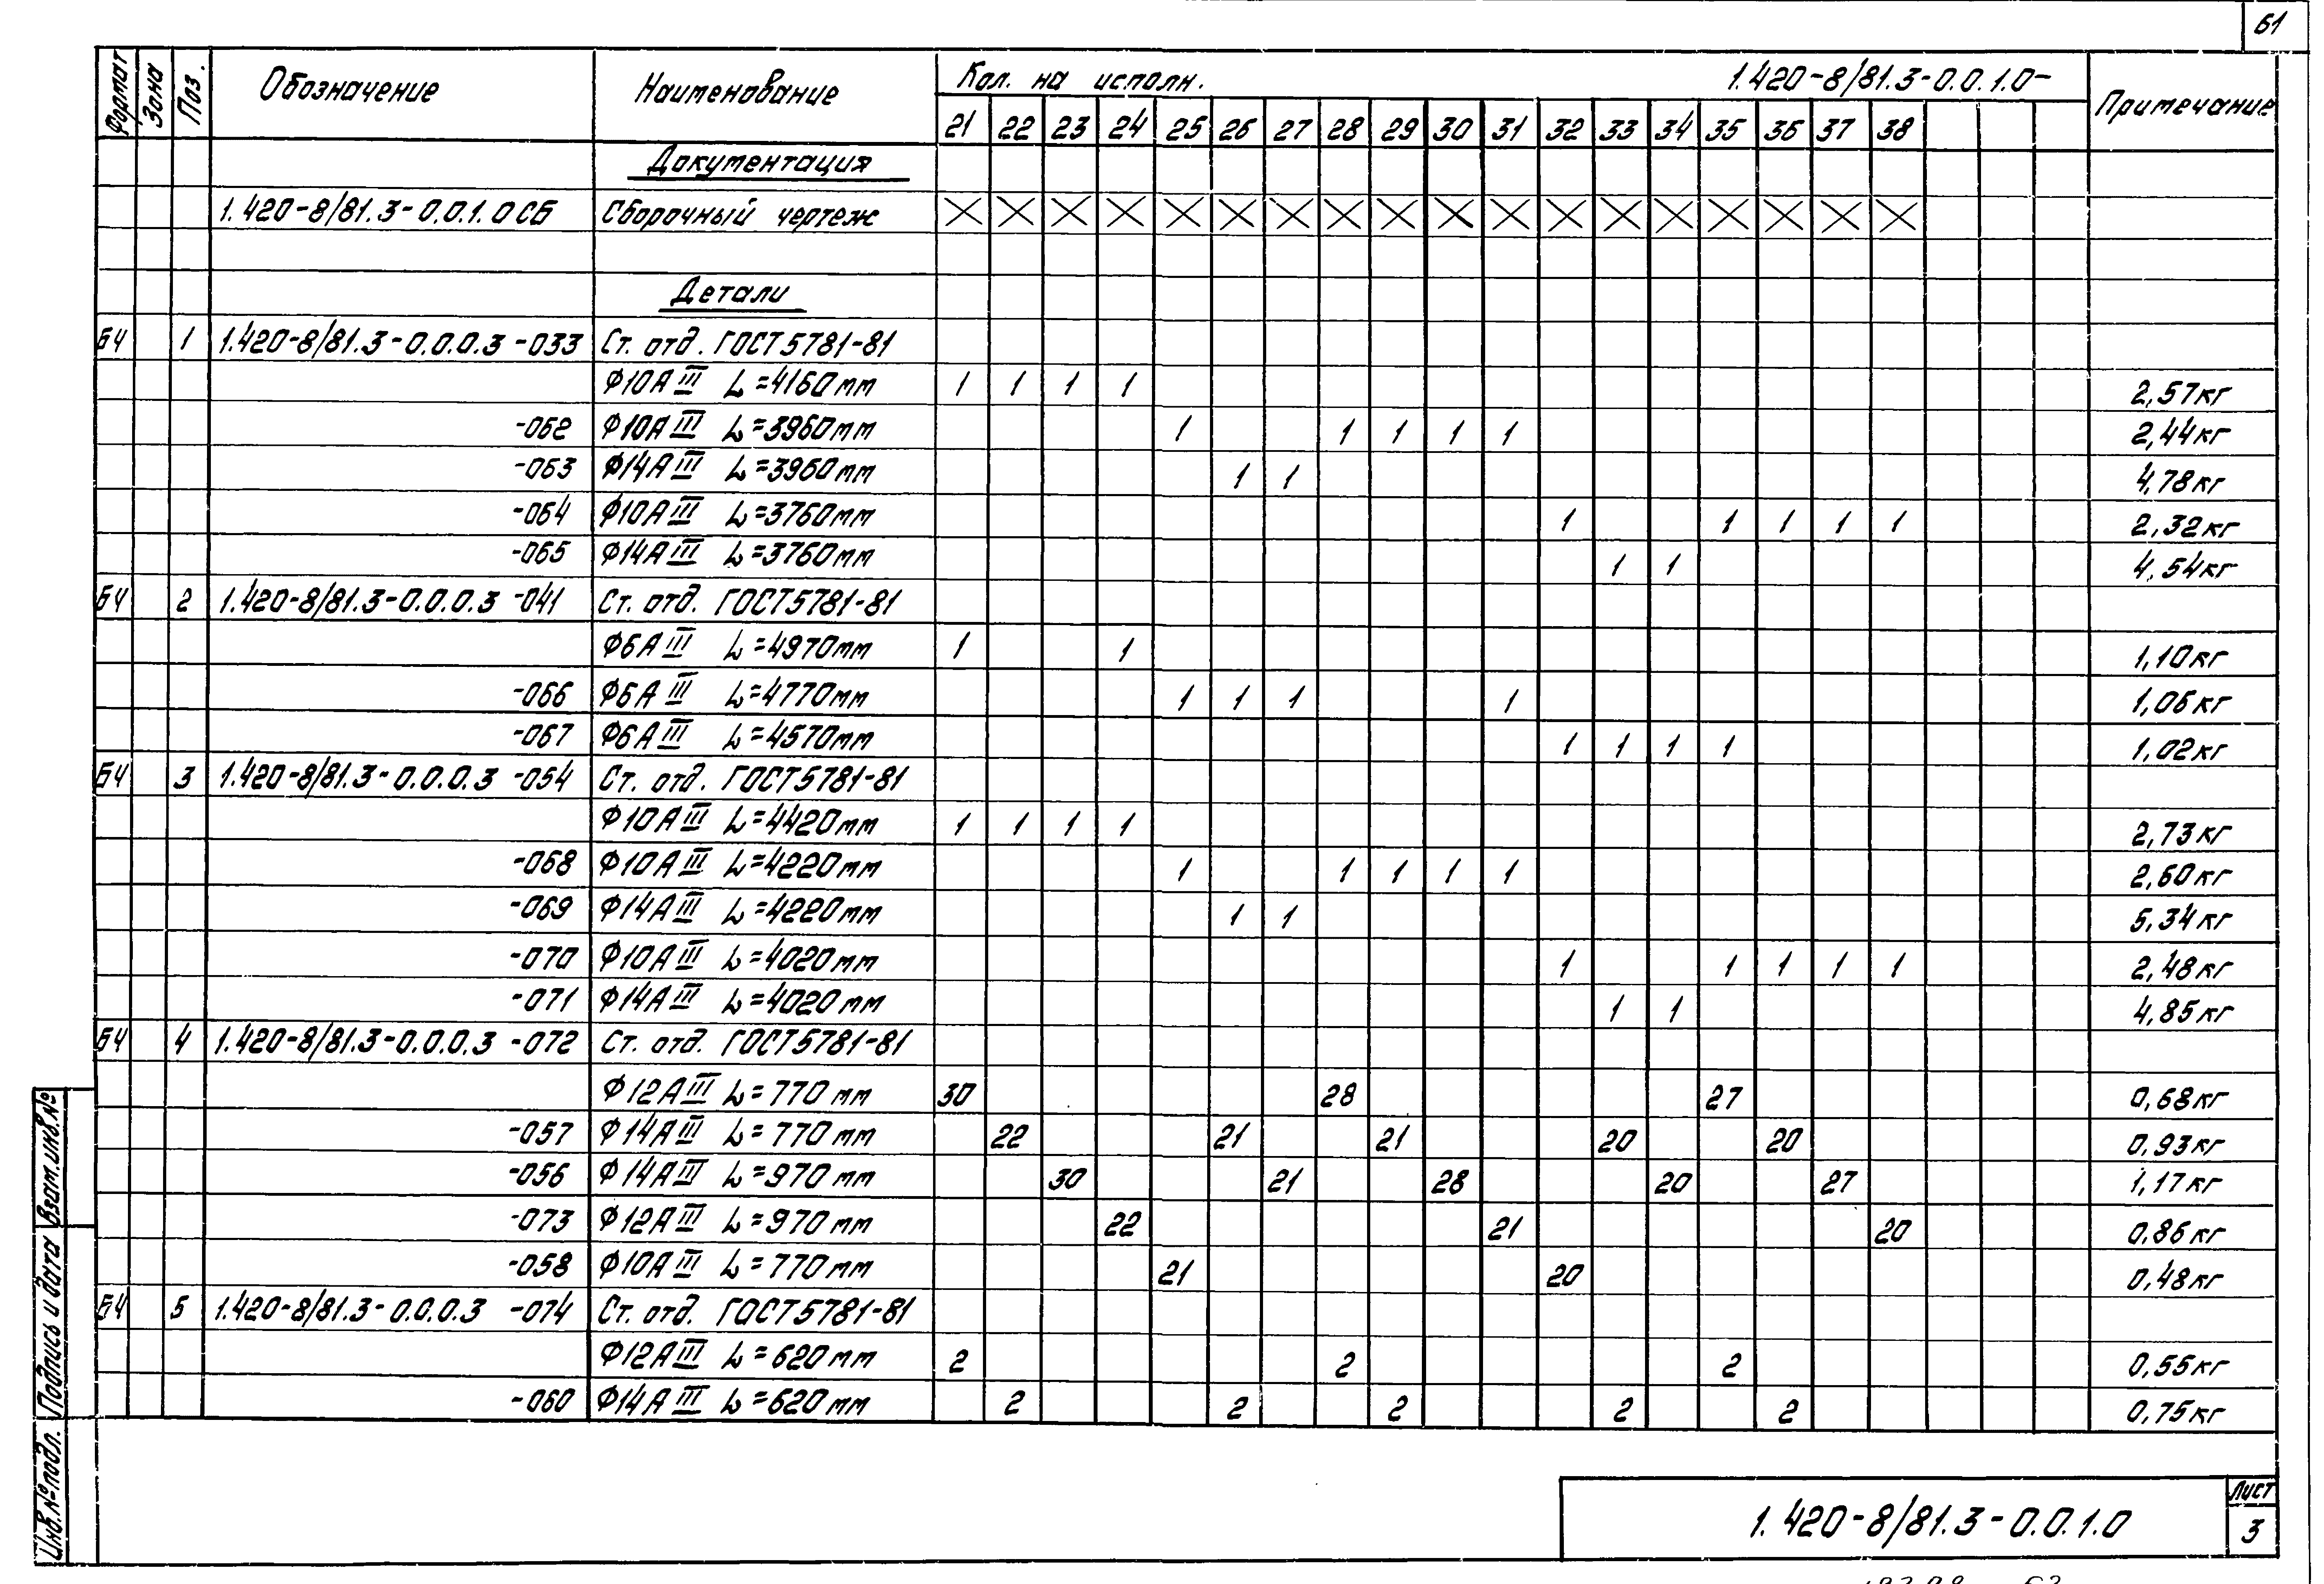 61
Формат Зона Поз. Обозначение Наименование Кол. на исполн. 1.420-8/81.3-0.0.1.0- Примечание
21 22 23 24 25 26 27 28 29 30 31 32 33 34 35 36 37 38
Документация
1.420-8/81.3-0.0.1.0 СБ Сборочный чертеж X X X X X X X X X X X X X X X X X X
Детали
БЧ 1 1.420-8/81.3-0.0.0.3 -033 Ст. отд. ГОСТ 5781-81
Ф10АIII L=4160мм 1 1 1 1 2,57кг
-062 Ф10АIII L=3960мм 1 1 1 1 1 2,44кг
-063 Ф14АIII L=3960мм 1 1 4,78кг
-064 Ф10АIII L=3760мм 1 1 1 1 1 2,32кг
-065 Ф14АIII L=3760мм 1 1 4,54кг
БЧ 2 1.420-8/81.3-0.0.0.3 -041 Ст. отд. ГОСТ 5781-81
Ф6АIII L=4970мм 1 1 1,10кг
-066 Ф6АIII L=4770мм 1 1 1 1 1,06кг
-067 Ф6АIII L=4570мм 1 1 1 1 1,02кг
БЧ 3 1.420-8/81.3-0.0.0.3 -054 Ст. отд. ГОСТ 5781-81
Ф10АIII L=4420мм 1 1 1 1 2,73кг
-068 Ф10АIII L=4220мм 1 1 1 1 1 2,60кг
-069 Ф14АIII L=4220мм 1 1 5,34кг
-070 Ф10АIII L=4020мм 1 1 1 1 1 2,48кг
-071 Ф14АIII L=4020мм 1 1 4,85кг
БЧ 4 1.420-8/81.3-0.0.0.3 -072 Ст. отд. ГОСТ 5781-81
Ф12АIII L=770мм 30 28 27 0,68кг
-057 Ф14АIII L=770мм 22 21 21 20 20 0,93кг
-056 Ф14АIII L=970мм 30 21 28 20 27 1,17кг
-073 Ф12АIII L=970мм 22 21 20 0,86кг
-058 Ф10АIII L=770мм 21 20 0,48кг
БЧ 5 1.420-8/81.3-0.0.0.3 -074 Ст. отд. ГОСТ 5781-81
Ф12АIII L=620мм 2 2 2 0,55кг
-060 Ф14АIII L=620мм 2 2 2 2 2 0,75кг
Инв.№подл. Подпись и дата Взам.инв.№
1.420-8/81.3-0.0.1.0
Лист
3